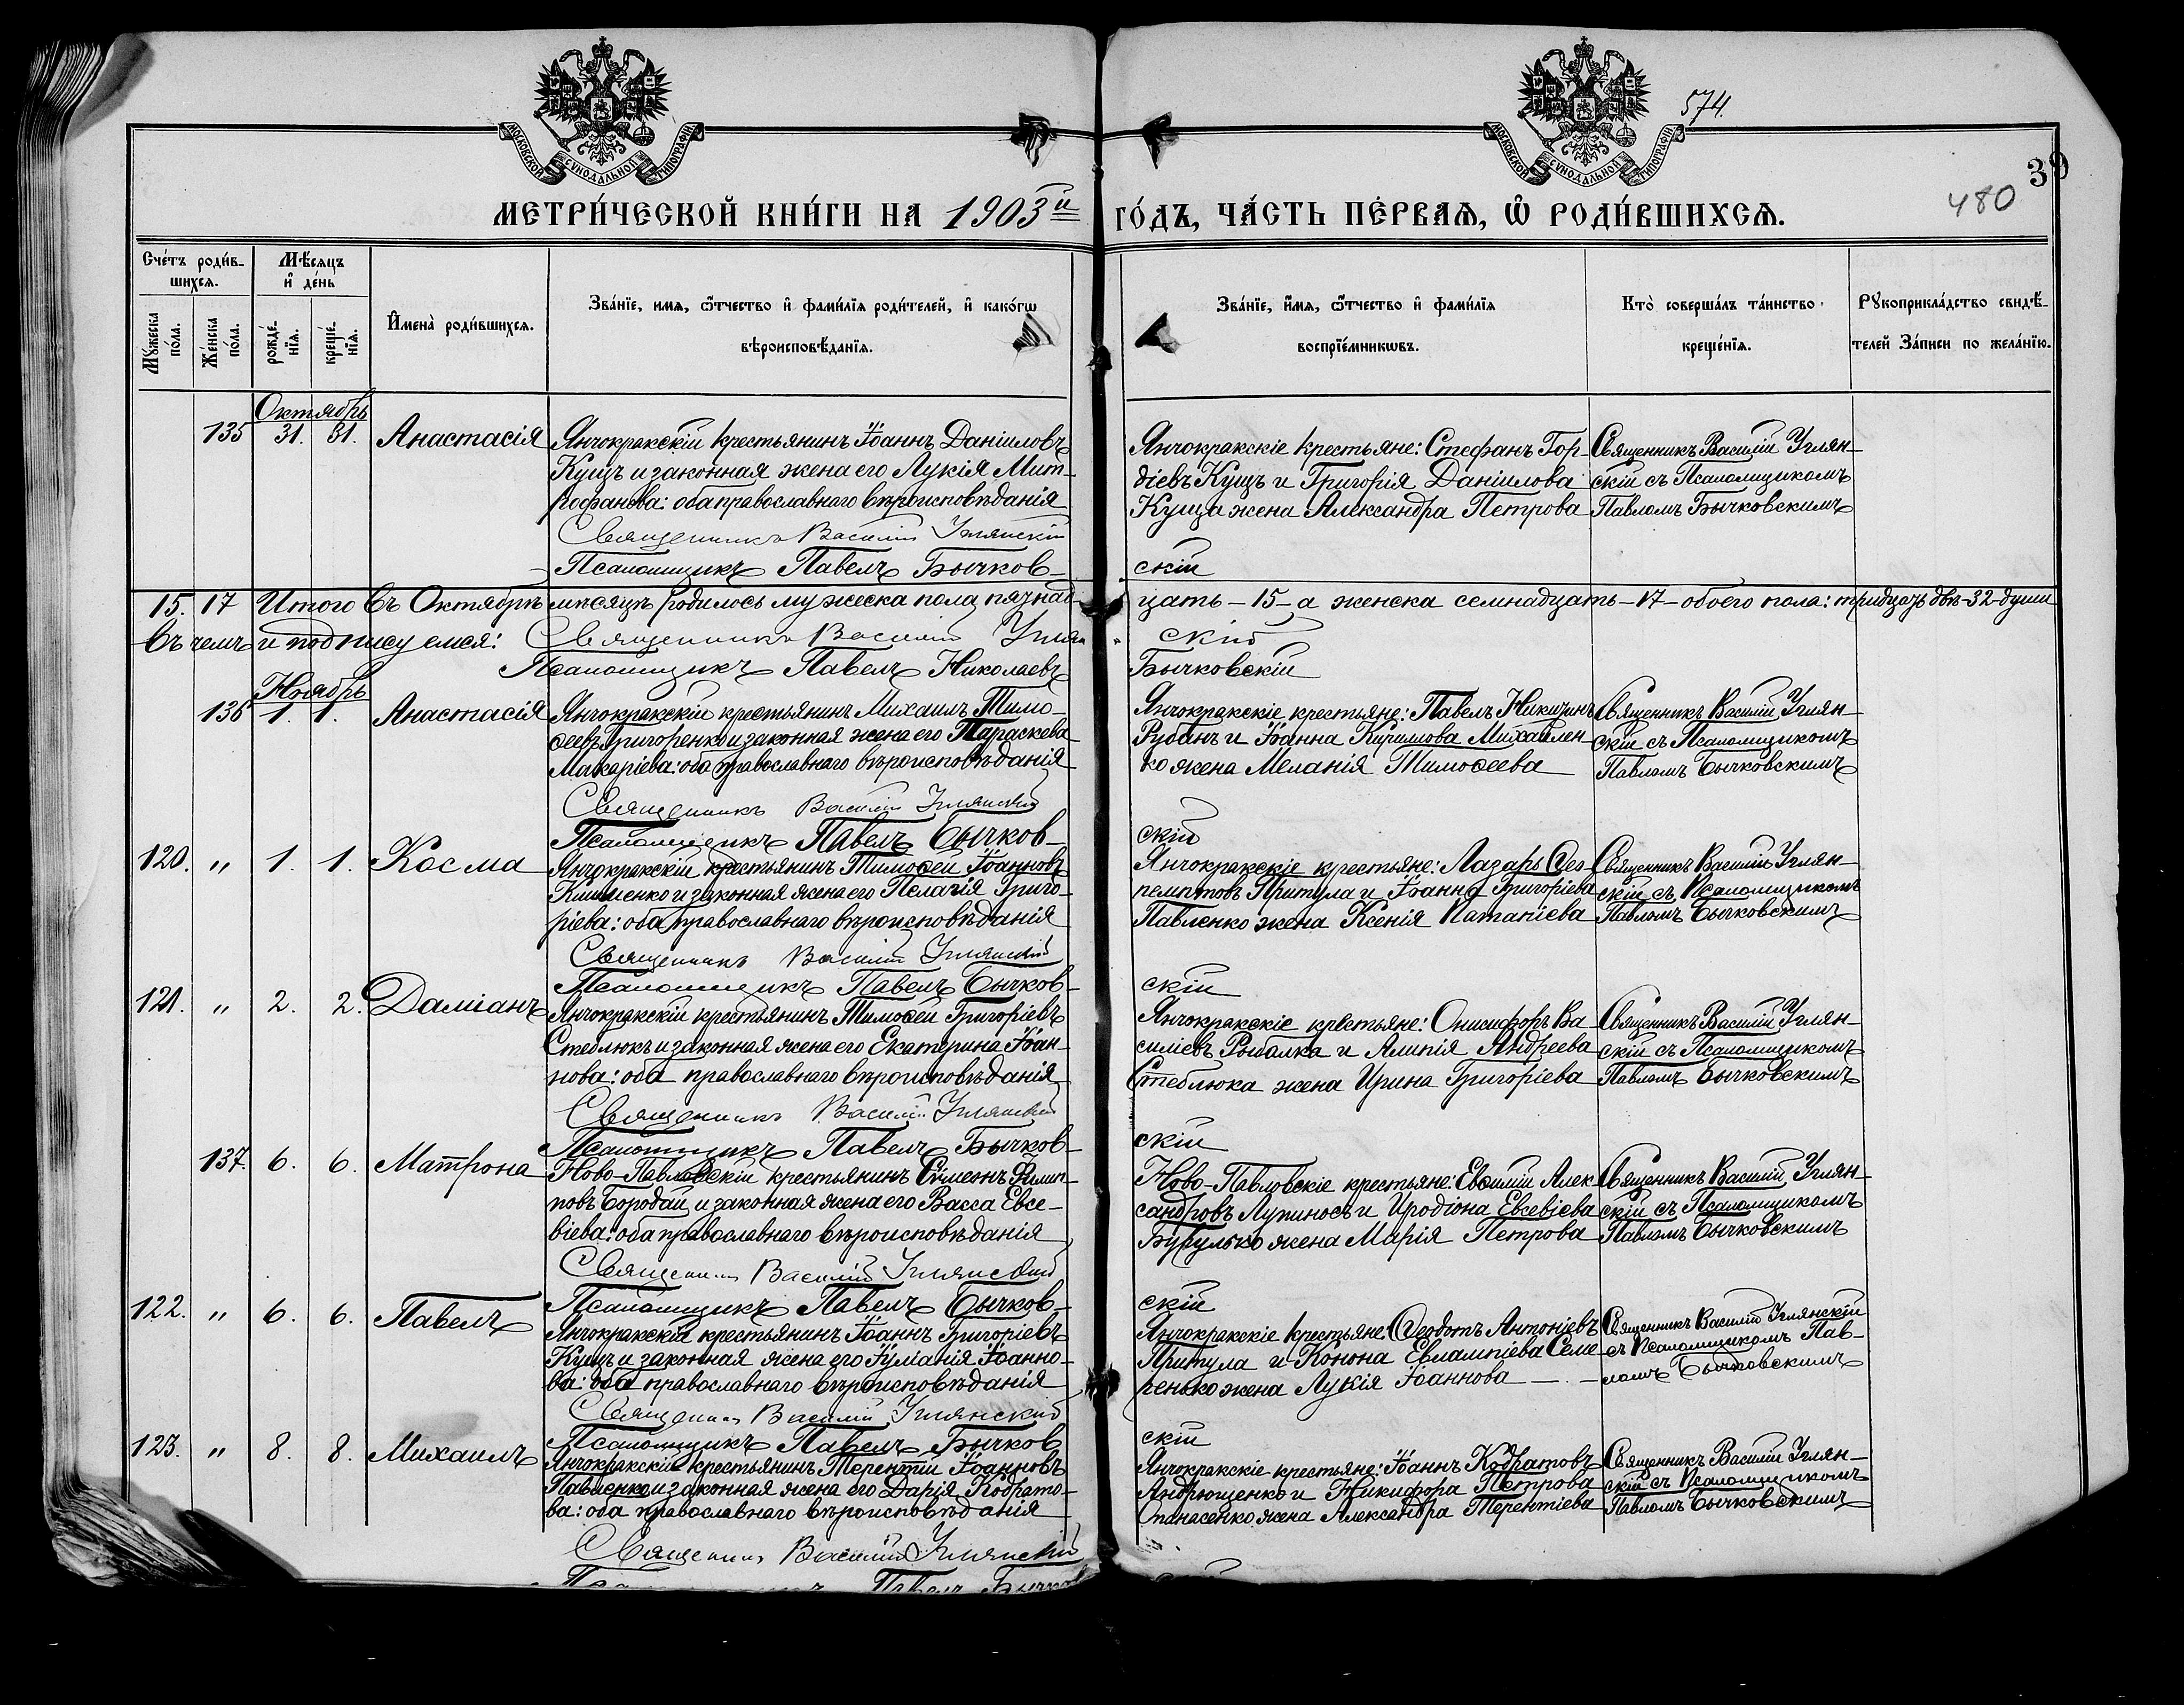 574.
МОСКОВСКОЙ СѴНОДАЛЬНОЙ ТИПОГРАФІИ
МОСКОВСКОЙ СѴНОДАЛЬНОЙ ТИПОГРАФІИ
39
480
МЕТРИ́ЧЕСКОЙ КНИ́ГИ НА 1903й ГО́ДЪ, ЧА́СТЬ ПЕ́РВАѦ, Ѡ҆ РОДИ́ВШИХСѦ.
Сче́тъ роди́в-
шихсѧ.
Мꙋ́жеска по́ла.
Же́нска по́ла.
Мѣ́сѧцъ
и҆ де́нь
рожде́-нїѧ.
креще́-нїѧ.
И҆мена̀ роди́вшихсѧ.
Зва́нїе, имѧ, ѻ҆́тчество и҆ фами́лїѧ роди́телей, и҆ како́гѡ
вѣроисповѣ́данїѧ.
Зва́нїе, и҆́мѧ, ѻ҆́тчество и҆ фами́лїѧ
воспрїе́мникѡвъ.
Кто̀ соверша́лъ та́инство
креще́нїѧ.
Рꙋкоприкла́дство свидѣ́-
телей За́писи по жела́нїю.
Октябрь
135 31. 31. Анастасія
Янчокракскій крестьянинъ Іоаннъ Даніиловъ
Кущъ и законная жена его Лукія Мит-
рофанова: оба православнаго вѣроисповѣданія
Священникъ Василій Углянскій
Псаломщикъ Павелъ Бычков-
Янчокракскіе крестьяне: Стефанъ Гор-
діевъ Кущъ и Григорія Даніилова
Куща жена Александра Петрова
скій
Священникъ Василій Углян-
скій съ Псаломщикомъ
Павломъ Бычковскимъ
15. 17 Итого въ Октябрѣ мѣсяцѣ родилось мужеска пола пятнад-цать – 15 – а женска семнадцать – 17 – обоего пола: тридцать двѣ – 32 – души
въ чемъ и подписуемся: Священникъ Василій Углян-скій
Псаломщикъ Павелъ Николаевъ Бычковскій
Ноябрь
136 1. 1. Анастасія
Янчокракскій крестьянинъ Михаилъ Тимо-
ѳеевъ Григоренко и законная жена его Параскева
Макаріева: оба православнаго вѣроисповѣданія
Священникъ Василій Углянскій
Псаломщикъ Павелъ Бычков-
Янчокракскіе крестьяне: Павелъ Никитинъ
Рубанъ и Іоанна Кириллова Михайлен-
ко жена Меланія Тимоѳеева
скій
Священникъ Василій Углян-
скій съ Псаломщикомъ
Павломъ Бычковскимъ
120. " 1. 1. Косма
Янчокракскій крестьянинъ Тимоѳей Іоанновъ
и законная жена его Пелагія Григо-
ріева: оба православнаго вѣроисповѣданія
Священникъ Василій Углянскій
Псаломщикъ Павелъ Бычков-
Янчокракскіе крестьяне: Лазарь Ѳео-
пемптовъ Притула и Іоанна Григоріева
Павленко жена Ксенія
скій
Священникъ Василій Углян-
скій съ Псаломщикомъ
Павломъ Бычковскимъ
121. " 2. 2. Даміанъ
Янчокракскій крестьянинъ Тимоѳей Григоріевъ
Стеблюкъ и законная жена его Екатерина Іоан-
нова: оба православнаго вѣроисповѣданія
Священникъ Василій Углянскій
Псаломщикъ Павелъ Бычков-
Янчокракскіе крестьяне: Онисифоръ Ва-
силіевъ Рыбалка и Алипія Андреева
Стеблюка жена Ирина Григоріева
скій
Священникъ Василій Углян-
скій съ Псаломщикомъ
Павломъ Бычковскимъ
137. 6. 6. Матрона
Ново-Павловскій крестьянинъ Сѵмеонъ Филип-
повъ Бородай и законная жена его Васса Евсе-
віева: оба православнаго вѣроисповѣданія
Священникъ Василій Углянскій
Псаломщикъ Павелъ Бычков-
Ново-Павловскіе крестьяне: Евѳимій Алек-
сандровъ Лупиносъ и Иродіона Евсевіева
Бурулько жена Марія Петрова
скій
Священникъ Василій Углян-
скій съ Псаломщикомъ
Павломъ Бычковскимъ
122. " 6. 6. Павелъ
Янчокракскій крестьянинъ Іоаннъ Григоріевъ
Кущъ и законная жена его Іуліанія Іоанно-
ва: оба православнаго вѣроисповѣданія
Священникъ Василій Углянскій
Псаломщикъ Павелъ Бычков
Янчокракскіе крестьяне: Ѳеодотъ Антоніевъ
Притула и Конона Евлампіева Семе-
ренько жена Лукія Іоаннова
скій
Священникъ Василій Углянскій
съ Псаломщикомъ Пав-
ломъ Бычковскимъ
123. " 8. 8. Михаилъ
Янчокракскій крестьянинъ Терентій Іоанновъ
Павленко и законная жена его Дарія Кодрато-
ва: оба православнаго вѣроисповѣданія
Священникъ Василій Углянскій
Павелъ
Янчокракскіе крестьяне: Іоаннъ Кодратовъ
Андрющенко и Никифора Петрова
Опанасенко жена Александра Терентіева
Священникъ Василій Углян-
скій съ Псаломщикомъ
Павломъ Бычковскимъ